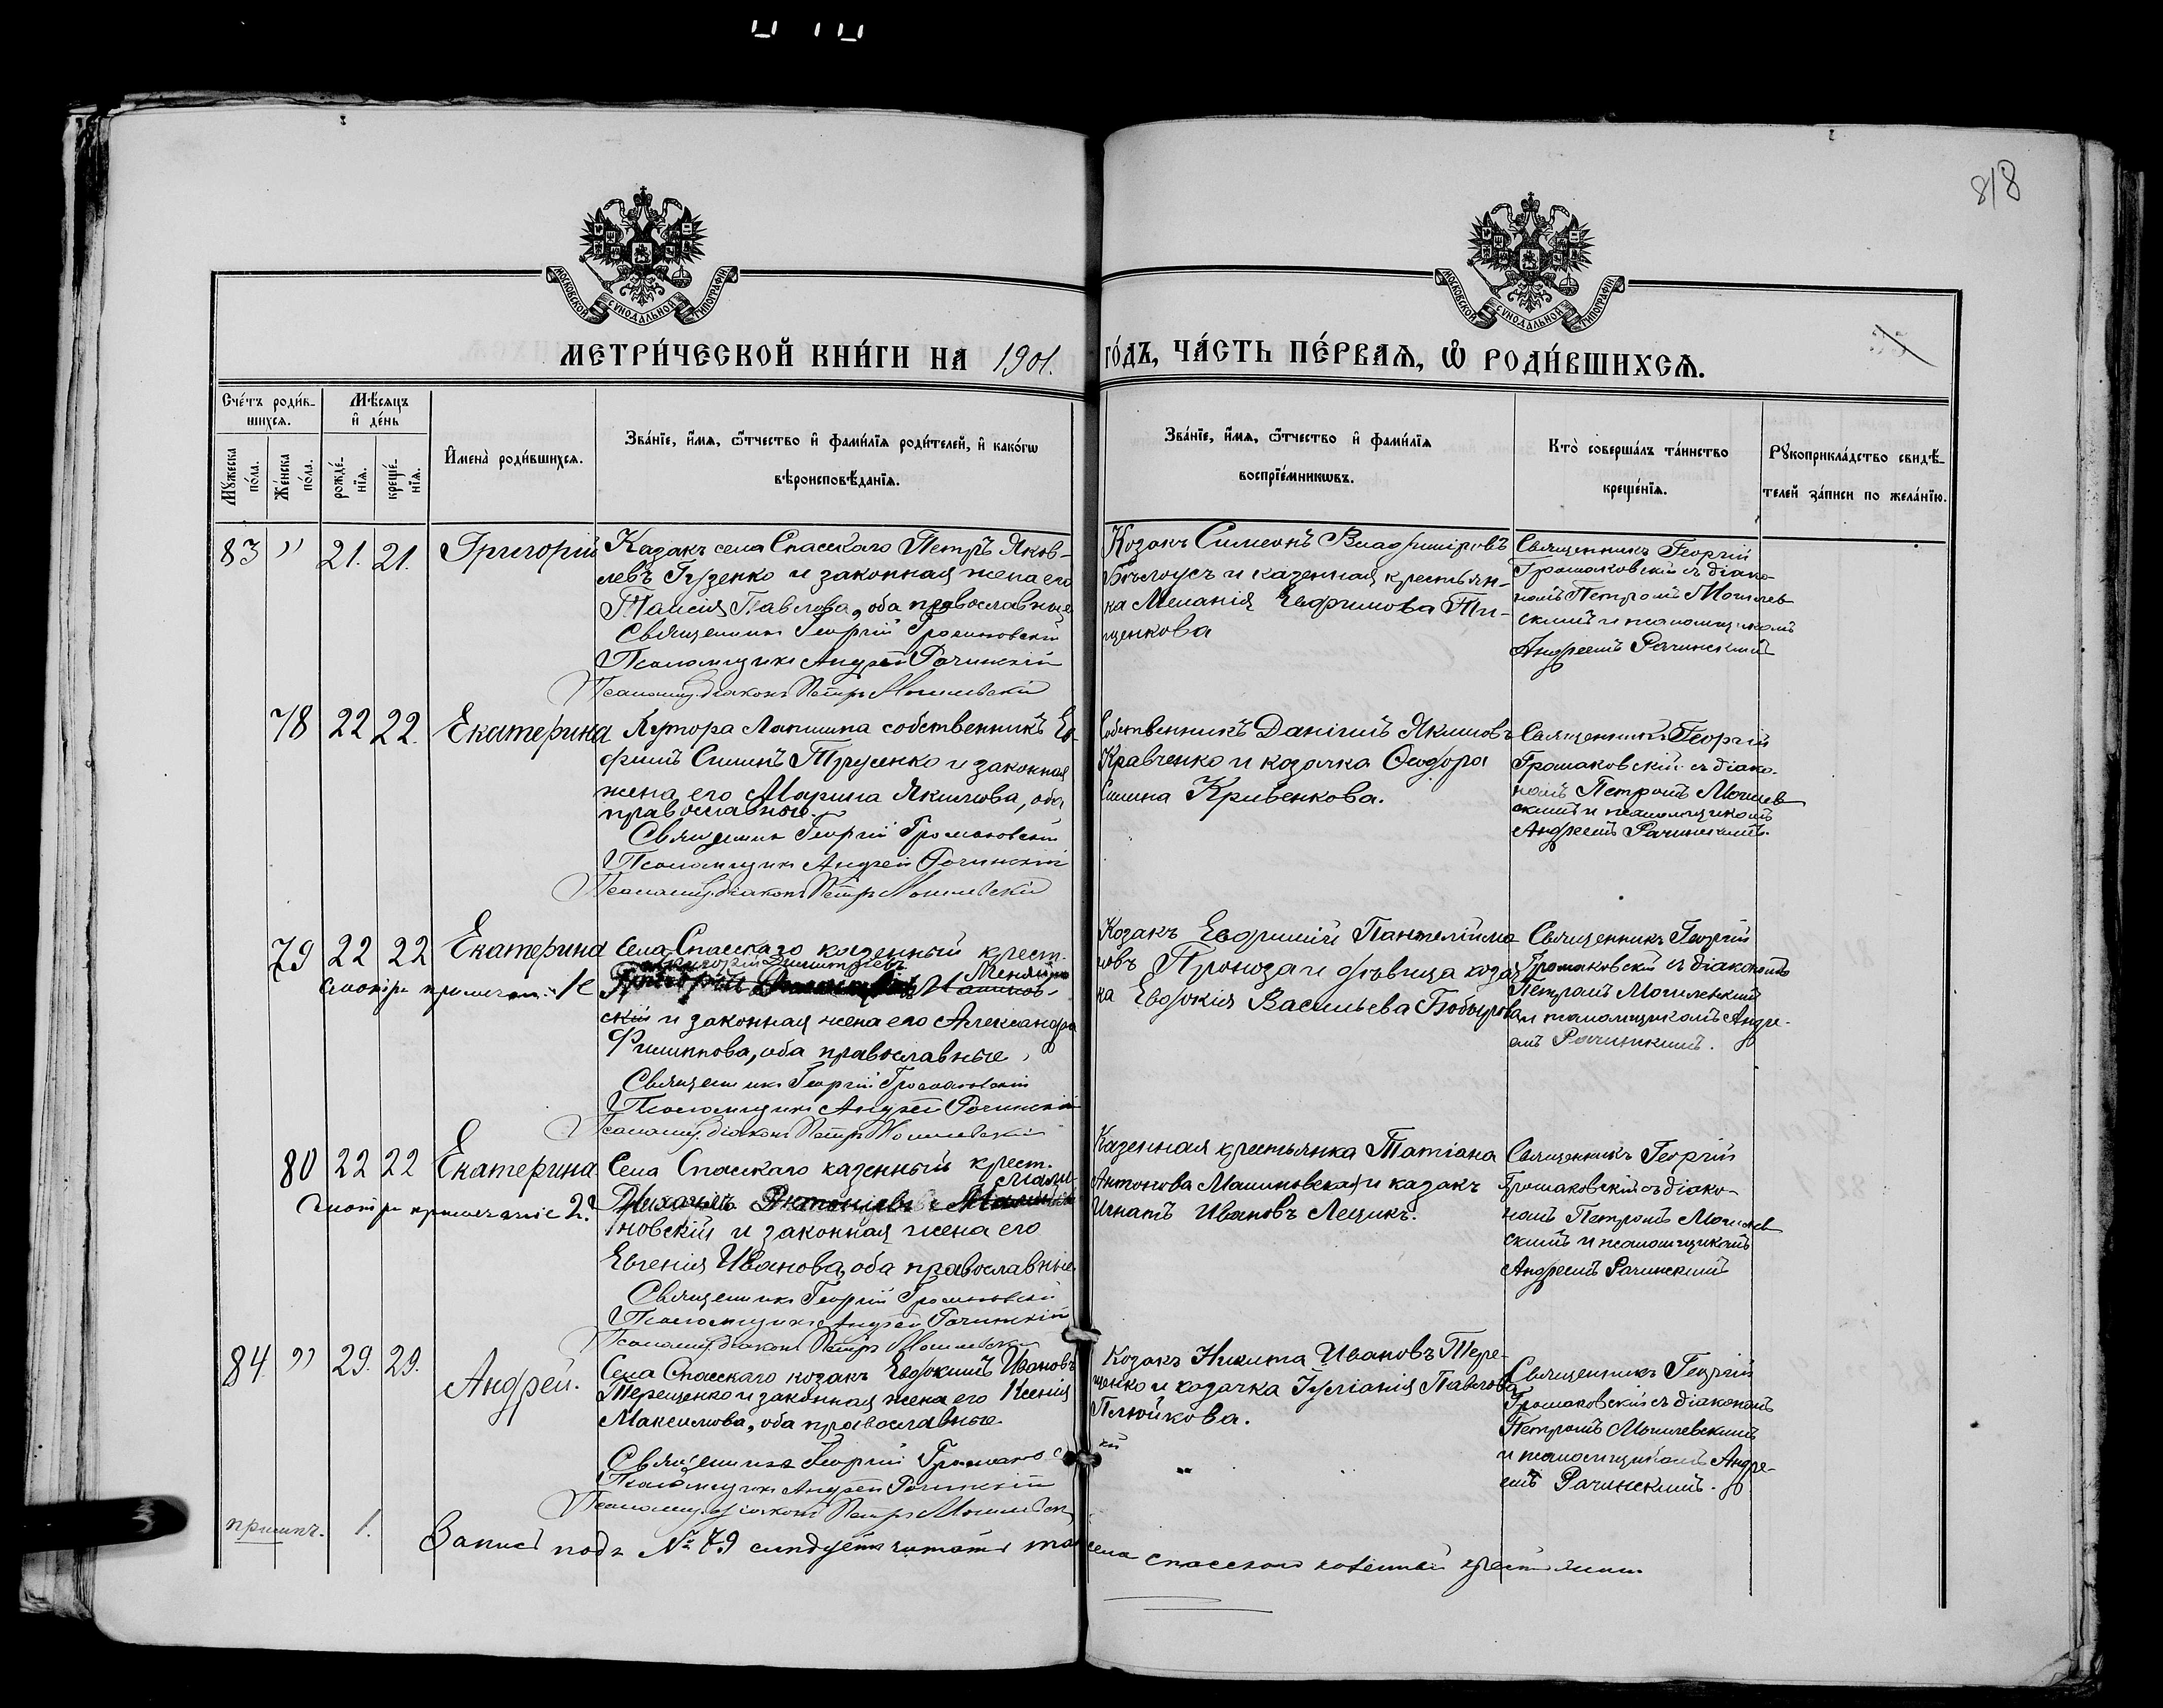 818
МОСКОВСКОЙ СѴНОДАЛЬНОЙ ТИПОГРАФІИ
МОСКОВСКОЙ СѴНОДАЛЬНОЙ ТИПОГРАФІИ
МЕТРИ́ЧЕСКОЙ КНИ́ГИ НА 1901. ГО́ДЪ, ЧА́СТЬ ПЕ́РВАѦ, Ѡ҆ РОДИ́ВШИХСѦ.
Сче́тъ роди́в-
шихсѧ.
Мѣ́сѧцъ
и҆ де́нь
Мꙋ́жеска
по́ла.
Же́нска
по́ла.
рожде́-
нїѧ.
креще́-
нїѧ.
И҆мена̀ роди́вшихсѧ.
Зва́нїе, и҆́мѧ, ѻ҆́тчество и҆ фами́лїѧ роди́телей, и҆ како́гѡ
вѣроисповѣ́данїѧ.
Зва́нїе, и҆́мѧ, ѻ҆́тчество и҆ фами́лїѧ
воспрїе́мникѡвъ.
Кто̀ соверша́лъ та́инство
креще́нїѧ.
Рꙋкоприкла́дство свидѣ́-
телей за́писи по жела́нїю.
83 " 21. 21. Григорій
Казакъ села Спасскаго Петръ Яков-
левъ Гузенко и законная жена его
Таисія Павлова, оба православные
Священникъ Георгій Громаковскій
Псаломщикъ Андрей Рачинскій
Псаломщ. діаконъ Петръ Могилевскій
Козакъ Симеонъ Владиміровъ
Бѣлоусъ и казенная крестьян-
ка Меланія Евфимова Ти-
щенкова
Священникъ Георгій
Громаковскій съ діако-
номъ Петромъ Могилев
скимъ и псаломщикомъ
Андреемъ Рачинскимъ
78 22 22. Екатерина
Хутора Лапшина собственникъ Ев-
фимъ Симинъ Трусенко и законная
жена его Марина Якимова, оба
православные.
Священникъ Георгій Громаковскій
Псаломщикъ Андрей Рачинскій
Псаломщ. діаконъ Петръ Могилевскій
Собственникъ Даніилъ Якимовъ
Кравченко и козачка Ѳеодора
Симина Кривенкова.
Священникъ Георгій
Громаковскій съ діако-
номъ Петромъ Могилев
скимъ и псаломщикомъ
Андреемъ Рачинскимъ.
79 22 22 Екатерина
смотри примечан. 1е
Села Спасскаго казенный крест.
Григорій Димитріевъ
скій и законная жена его Александра
Филиппова, оба православные,
Священникъ Георгій Громаковскій
Псаломщикъ Андрей Рачинскій
Псаломщ. діаконъ Петръ Могилевскій
Козакъ Евфимій Пантелеймо
новъ Проноза и дѣвица козач
ка Евдокія Васильева Бобырева
Священникъ Георгій
Громаковскій съ діакономъ
Петромъ Могилевскимъ
и псаломщикомъ Андре-
емъ Рачинскимъ.
80 22 22 Екатерина
Смотри примечаніе 2е
Села Спасскаго казенный крест.
Антоніевъ Мали
новскій и законная жена его
Евгенія Иванова, оба православные.
Священникъ Георгій Громаковскій
Псаломщикъ Андрей Рачинскій
Псаломщ. діаконъ Петръ Могилевскій
Казенная крестьянка Татіана
Антонова Малиновская и казакъ
Игнатъ Ивановъ Лещикъ.
Священникъ Георгій
Громаковскій съ діако-
номъ Петромъ Могилев
скимъ и псаломщикомъ
Андреемъ Рачинскимъ
84. " 29. 29. Андрей.
Села Спасскаго козакъ Евдокимъ Ивановъ
Терещенко и законная жена его Ксенія
Максимова, оба православные.
Священникъ Георгій Громаковскій
Псаломщикъ Андрей Рачинскій
Псаломщ. діаконъ Петръ Могилевск
Козакъ Никита Ивановъ Тере-
щенко и козачка Іуліанія Павлова
Плюйкова.
Священникъ Георгій
Громаковскій съ діакономъ
Петромъ Могилевскимъ
и псаломщикомъ Андре-
емъ Рачинскимъ.
примѣч. 1. Запись подъ № 79 слѣдуетъ читать такъ села Спасскаго казенный крестьянин